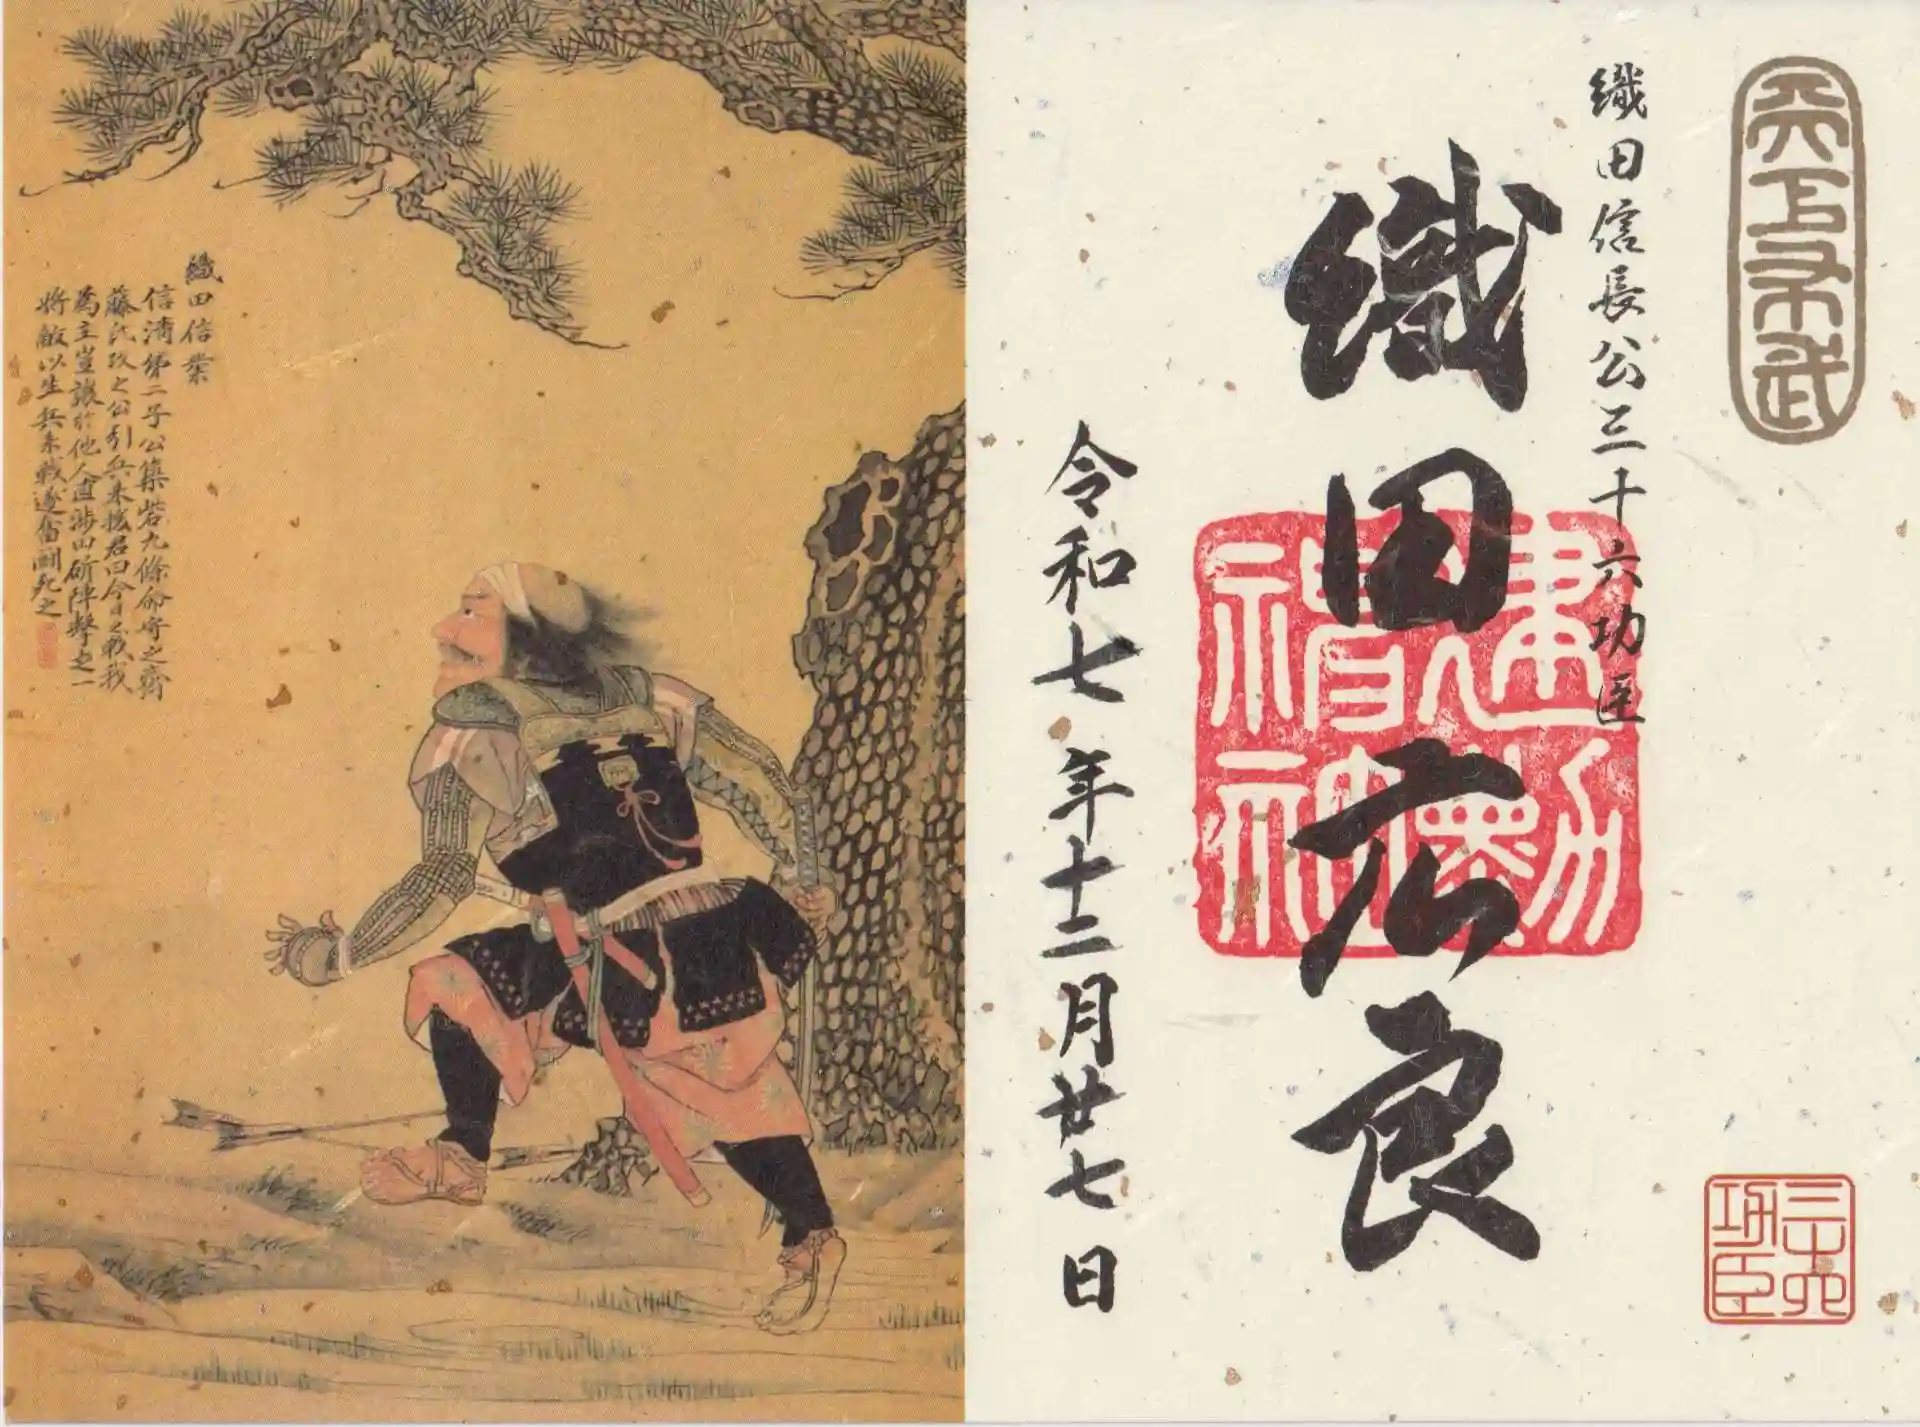 天下布武
織田信長公三十六功臣
織田広良
建勲神社
令和七年十二月廿七日
三十六功臣
織田信業
信清第二子公築砦九條命守之齋
藤氏攻之公引兵来援君曰今日之戦我
為主豈讓於他人直渉山斫陣撃之一
将敵以生兵来戦遂奮闘死之